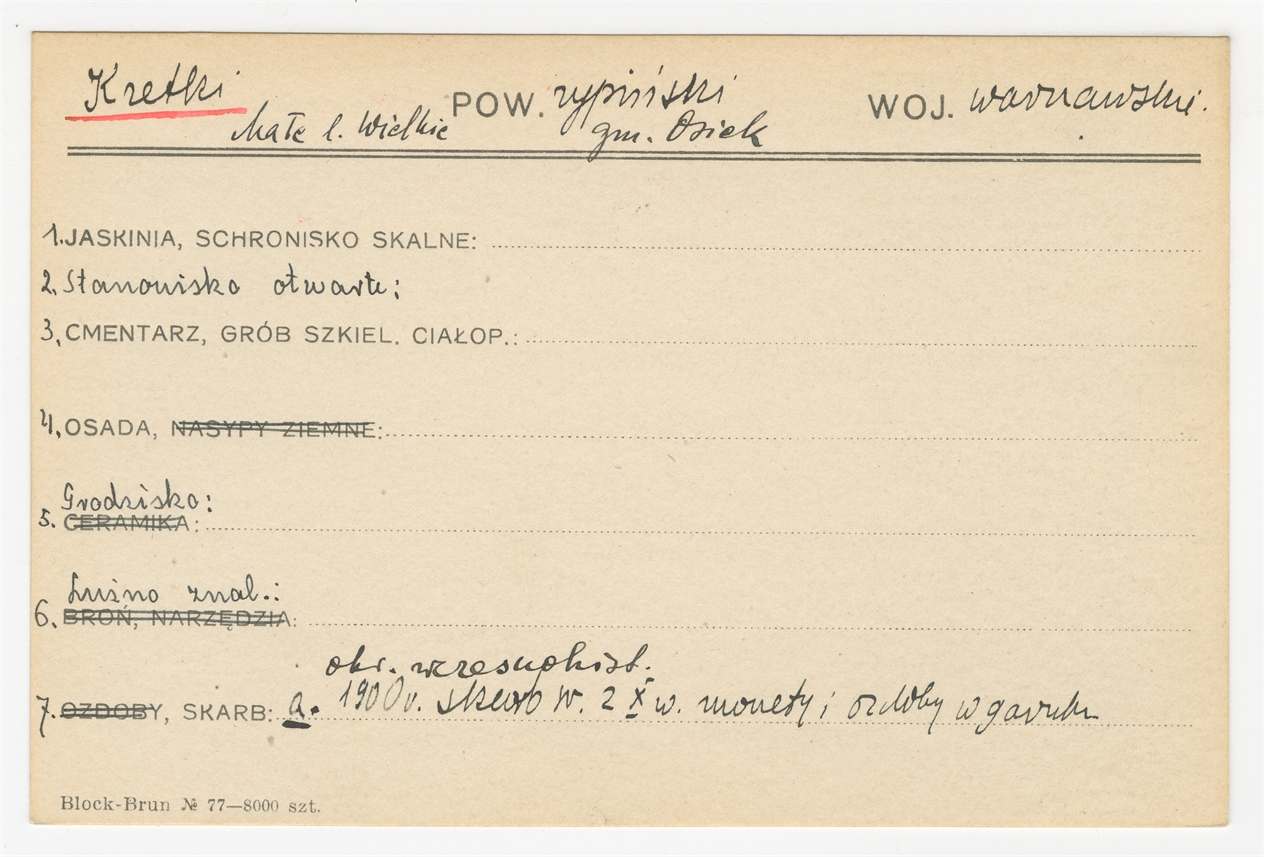 Kretki POW. rypiński WOJ. warszawskie.
Małe l. Wielkie gm. Osiek
1. JASKINIA, SCHRONISKO SKALNE:
2. Stanowisko otwarte:
3. CMENTARZ, GRÓB SZKIEL. CIAŁOP.:
4. OSADA, NASYPY ZIEMNE:
Grodzisko:
5. CERAMIKA:
Luźno znal.:
6. BROŃ, NARZĘDZIA:
okr. wczesnohist.
7. OZDOBY, SKARB: a. 1900 r. skarb w. 2 X w. monety i ozdoby w garnku
Block-Brun № 77—8000 szt.